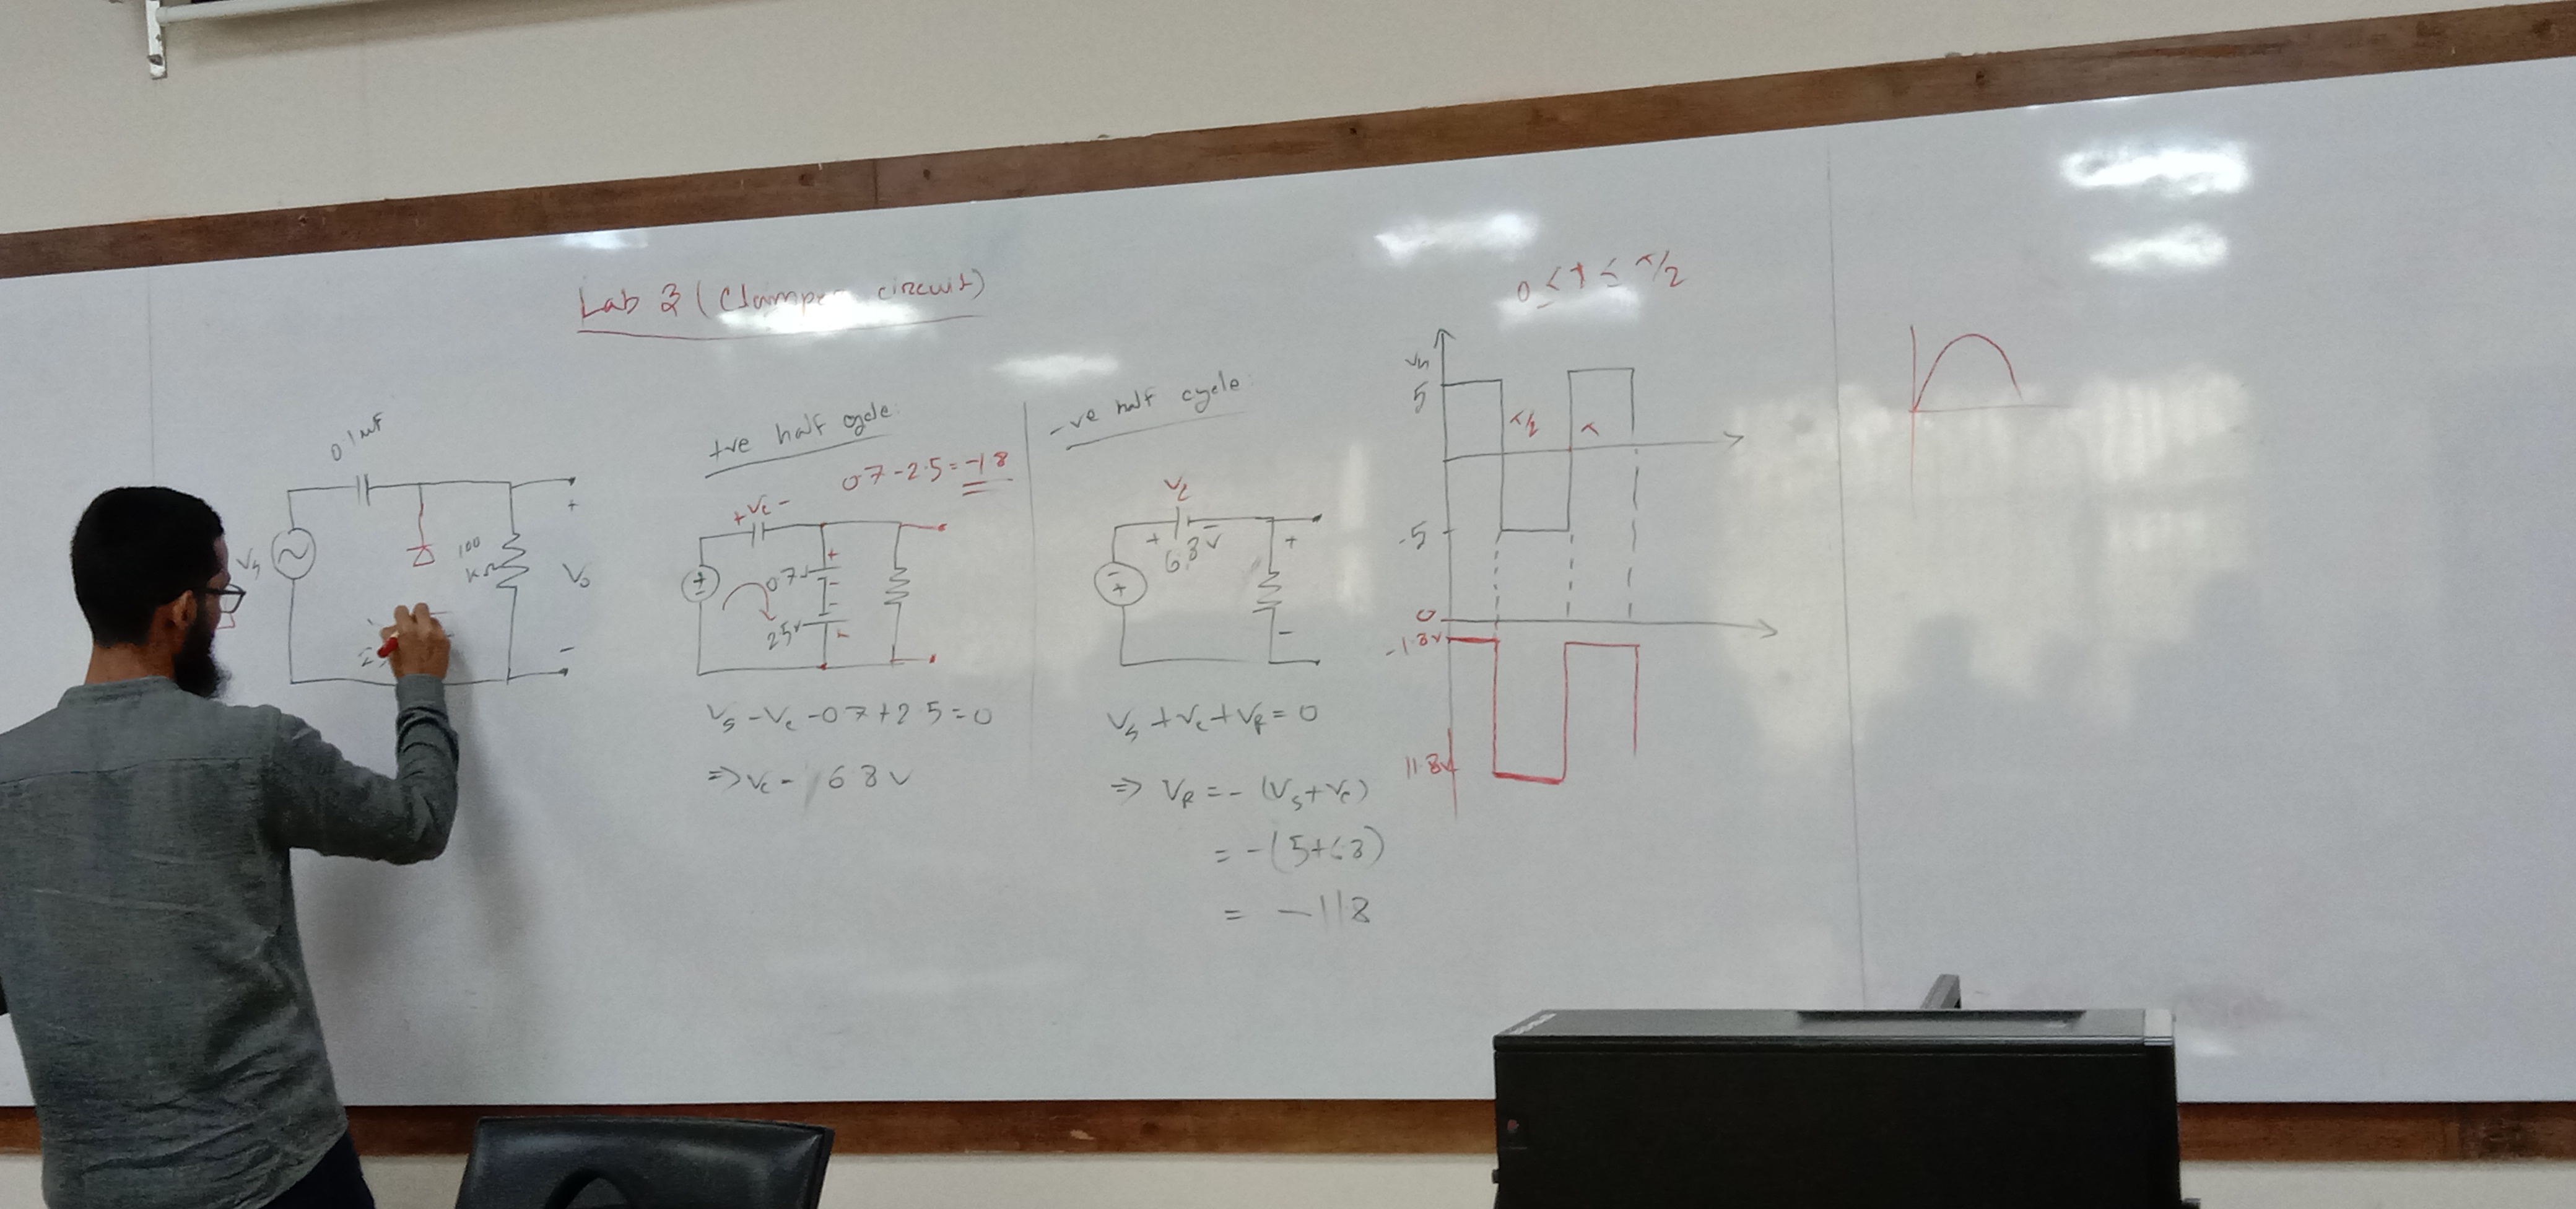 Lab 2 (Clamper circuit)
0.1 μF
Vs
100
KΩ
+
Vo
-
+ve half cycle:
0.7-2.5=-1.8
+Vc-
+
0.7v
-
2.5v
+
Vs-Vc-0.7+2.5=0
⇒Vc= 6.8v
-ve half cycle:
Vc
+ -
6.8v
+
-
Vs+Vc+VR=0
⇒ VR=-(Vs+Vc)
=-(5+6.8)
= -11.8
0≤t≤π/2
Vs
5
π/2
π
-5
0
-1.8v
11.8v